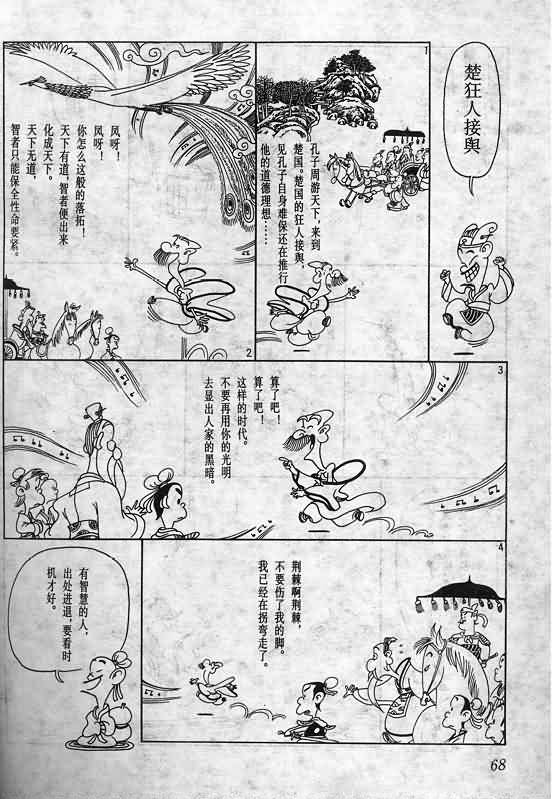 楚狂人接舆
1
孔子周游天下，来到
楚国。楚国的狂人接舆，
见孔子自身难保还在推行
他的道德理想……
2
凤呀！
凤呀！
你怎么这般的落拓！
天下有道，智者便出来
化成天下。
天下无道，
智者只能保全性命要紧。
3
算了吧！
算了吧！
这样的时代。
不要再用你的光明
去显出人家的黑暗。
4
荆棘啊荆棘，
不要伤了我的脚。
我已经在拐弯走了。
有智慧的人，
出处进退，要看时
机才好。
68